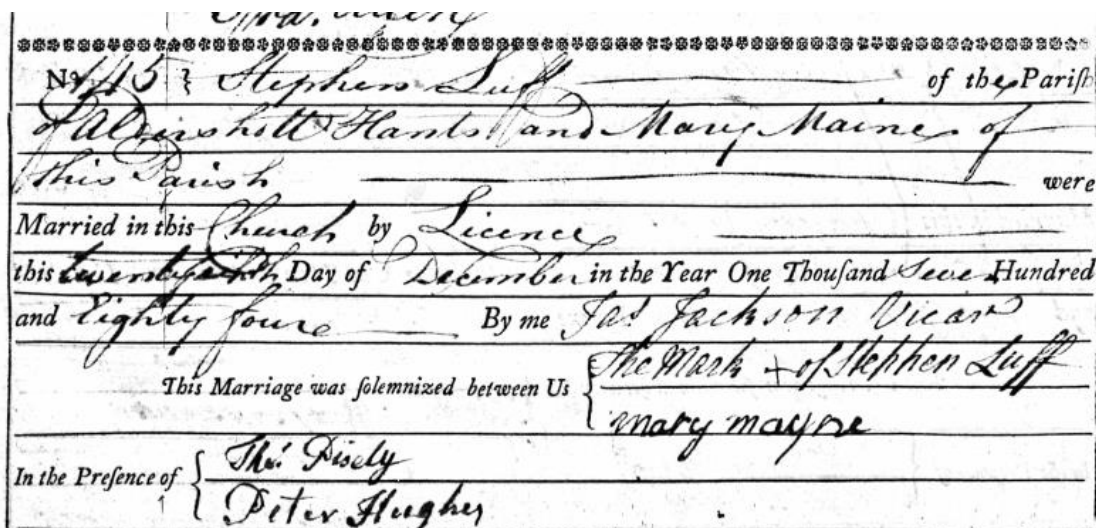 No 415 } Stephen Luff of the Pariſh
of Aldershott Hants and Mary Maine of
this Parish were
Married in this Church by Licence
this Day of December in the Year One Thouſand Seven Hundred
and Eighty foure By me Jas Jackson Vicar
This Marriage was ſolemnized between Us { The Mark + of Stephen Luff
mary mayne
In the Preſence of { Thos Pisely
Peter Hughes